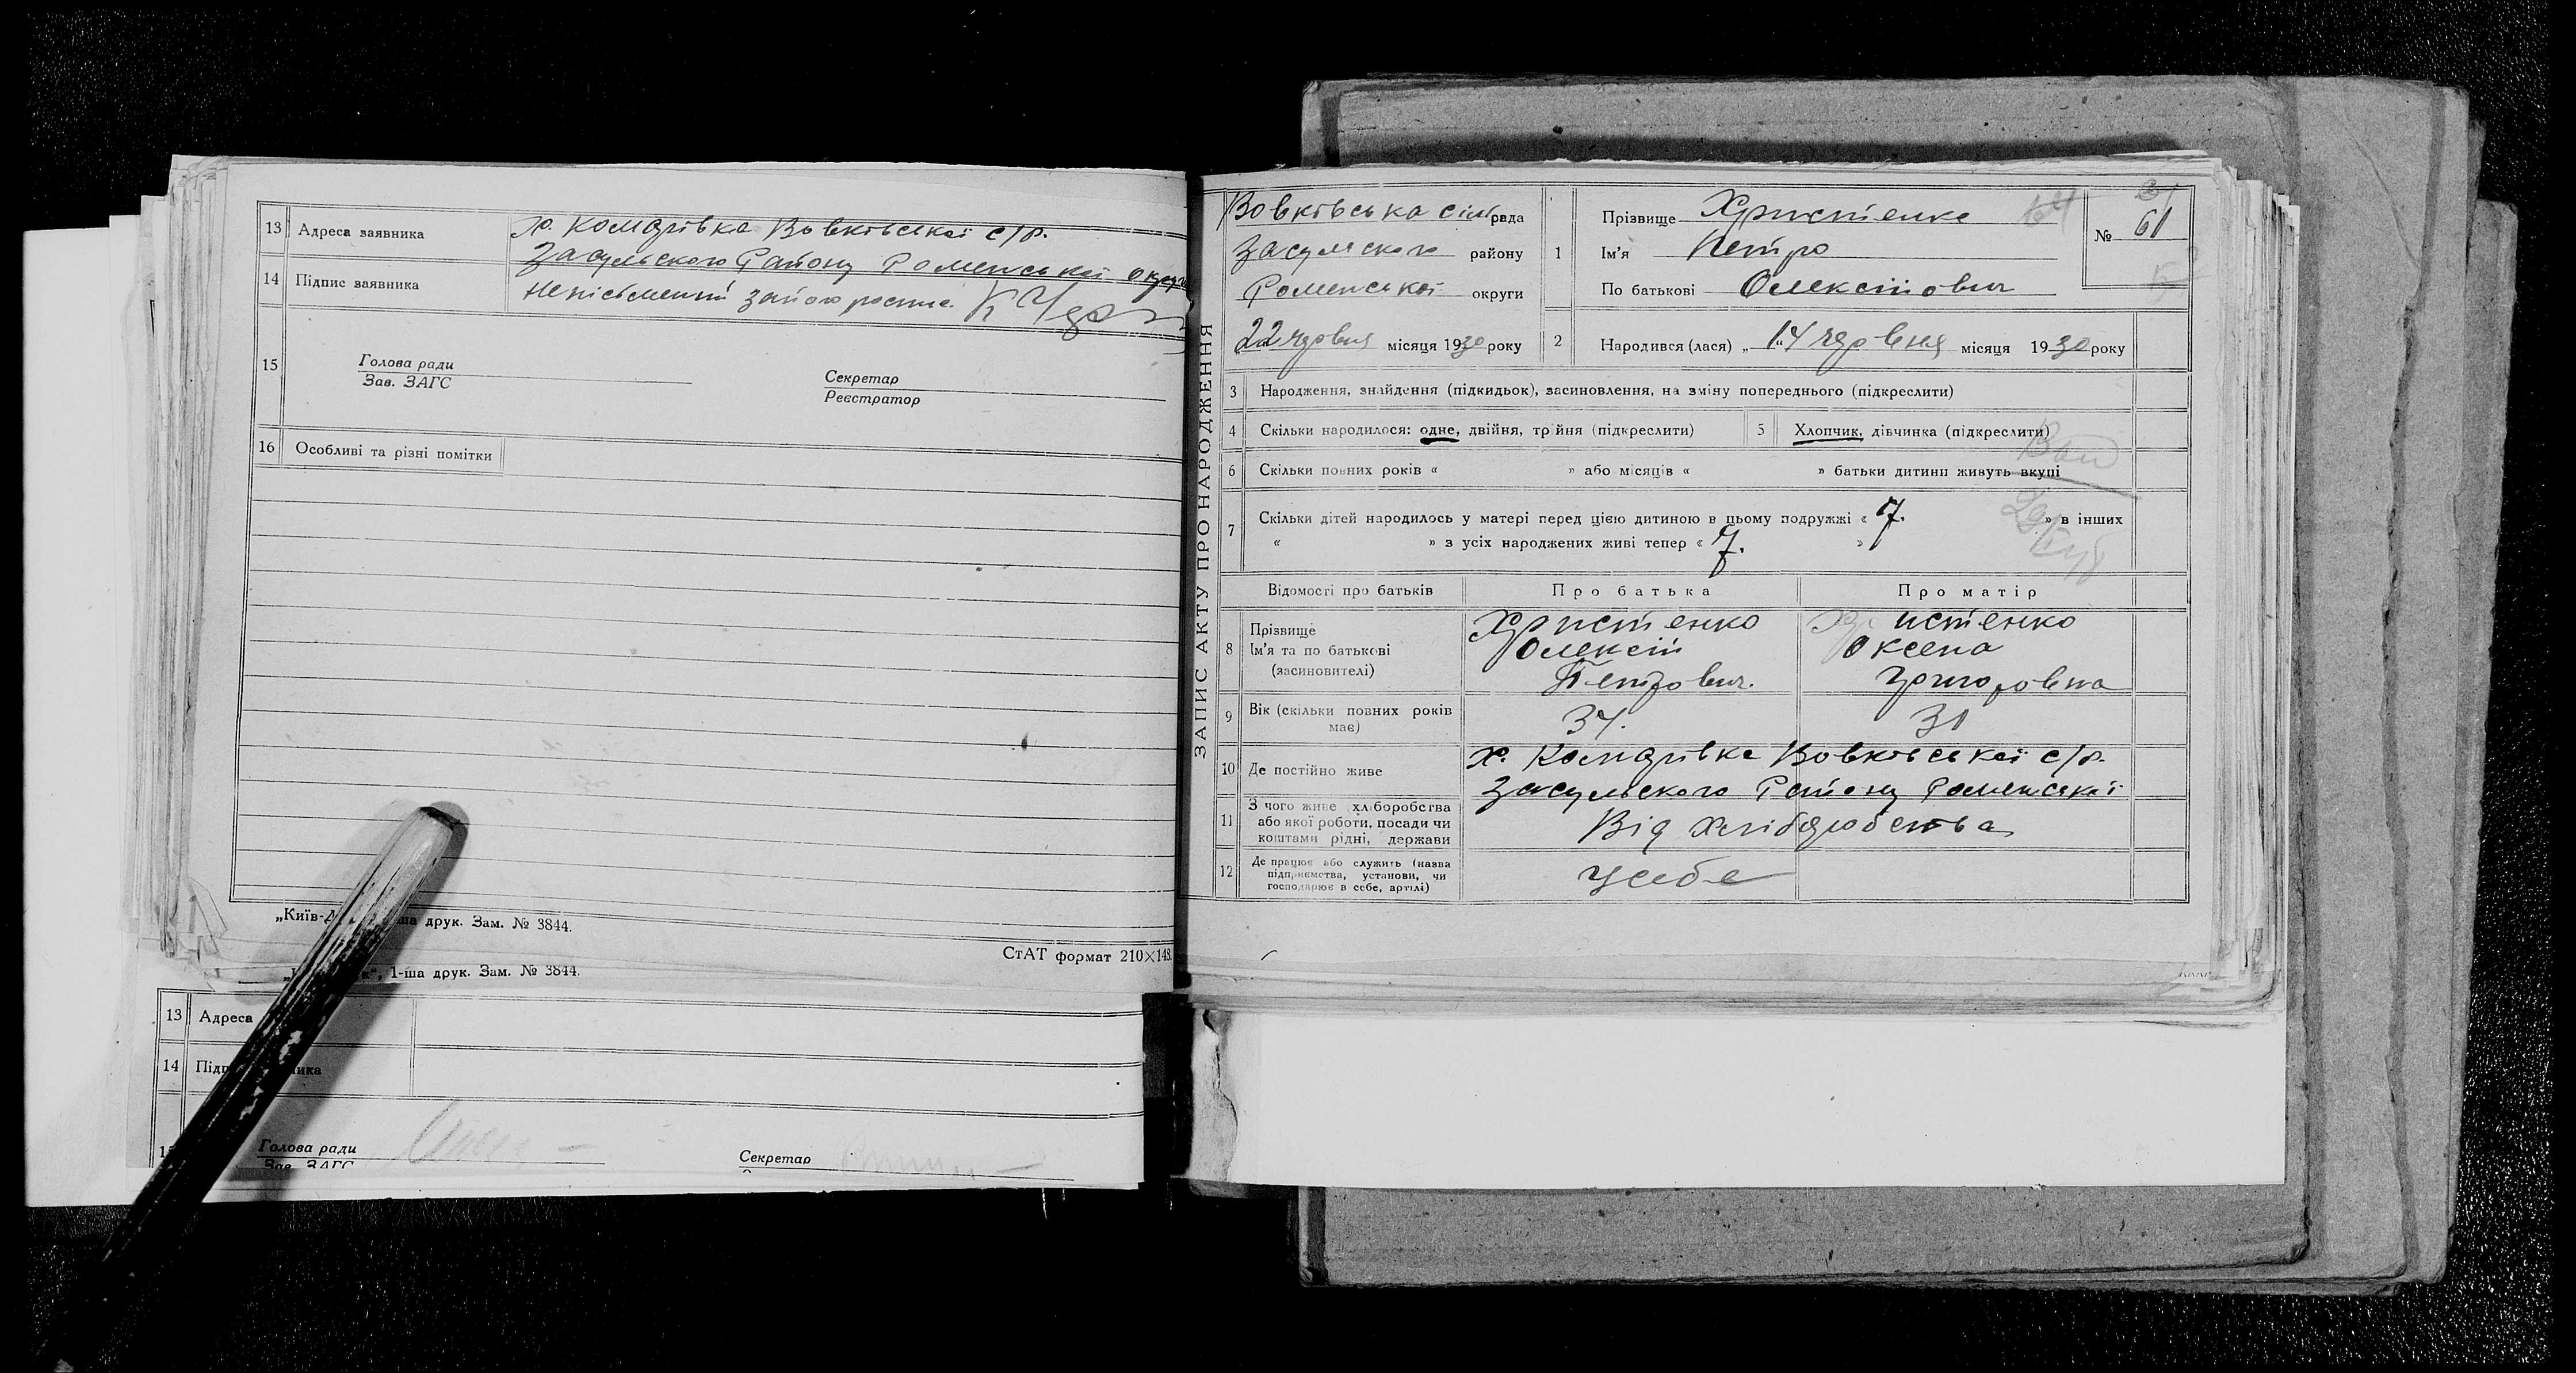 13 Адреса заявника х. Комарівка Вовківської с/р.
Засульского Району Роменської округ
14 Підпис заявника Неписьменний за його росписа
15 Голова ради
Зав. ЗАГС
Секретар
Реєстратор
16 Особливі та різні помітки
„Київ-Д ша друк. Зам. № 3844.
СтАТ формат 210×148.
к“, 1-ша друк. Зам. № 3844.
13 Адреса
14 Підп ика
Голова ради
Зав. ЗАГС
Секретар
ЗАПИС АКТУ ПРО НАРОДЖЕННЯ
Вовківська сільрада
Засульского району
Роменської округи
22 червня місяця 1930 року
1 Прізвище Христенко
Ім'я Петро
По батькові Олексійович
64
№ 61
2 Народився (лася) „14 червня місяця 1930 року
3 Народження, знайдення (підкидьок), засиновлення, на зміну попереднього (підкреслити)
4 Скільки народилося: одне, двійня, тройня (підкреслити) 5 Хлопчик, дівчинка (підкреслити)
6 Скільки повних років « » або місяців « » батьки дитини живуть вкупі
7 Скільки дітей народилось у матері перед цією дитиною в цьому подружжі « 7. » в інших
« » з усіх народжених живі тепер « 7. »
Відомості про батьків Про батька Про матір
8 Прізвище Христенко Христенко
Ім'я та по батькові Олексій Оксена
(засновителі) Петрович. Григоровна
9 Вік (скільки повних років має) 34. 31
10 Де постійно живе х. Комарівка Вовківської с/р.
Засульского Району Роменської
11 З чого живе хліборобства
або якої роботи, посади чи
коштами рідні, держави Від Хліборобства
12 Де працює або служить (назва
підприємства, установи, чи
господарює в себе, артілі) У себе